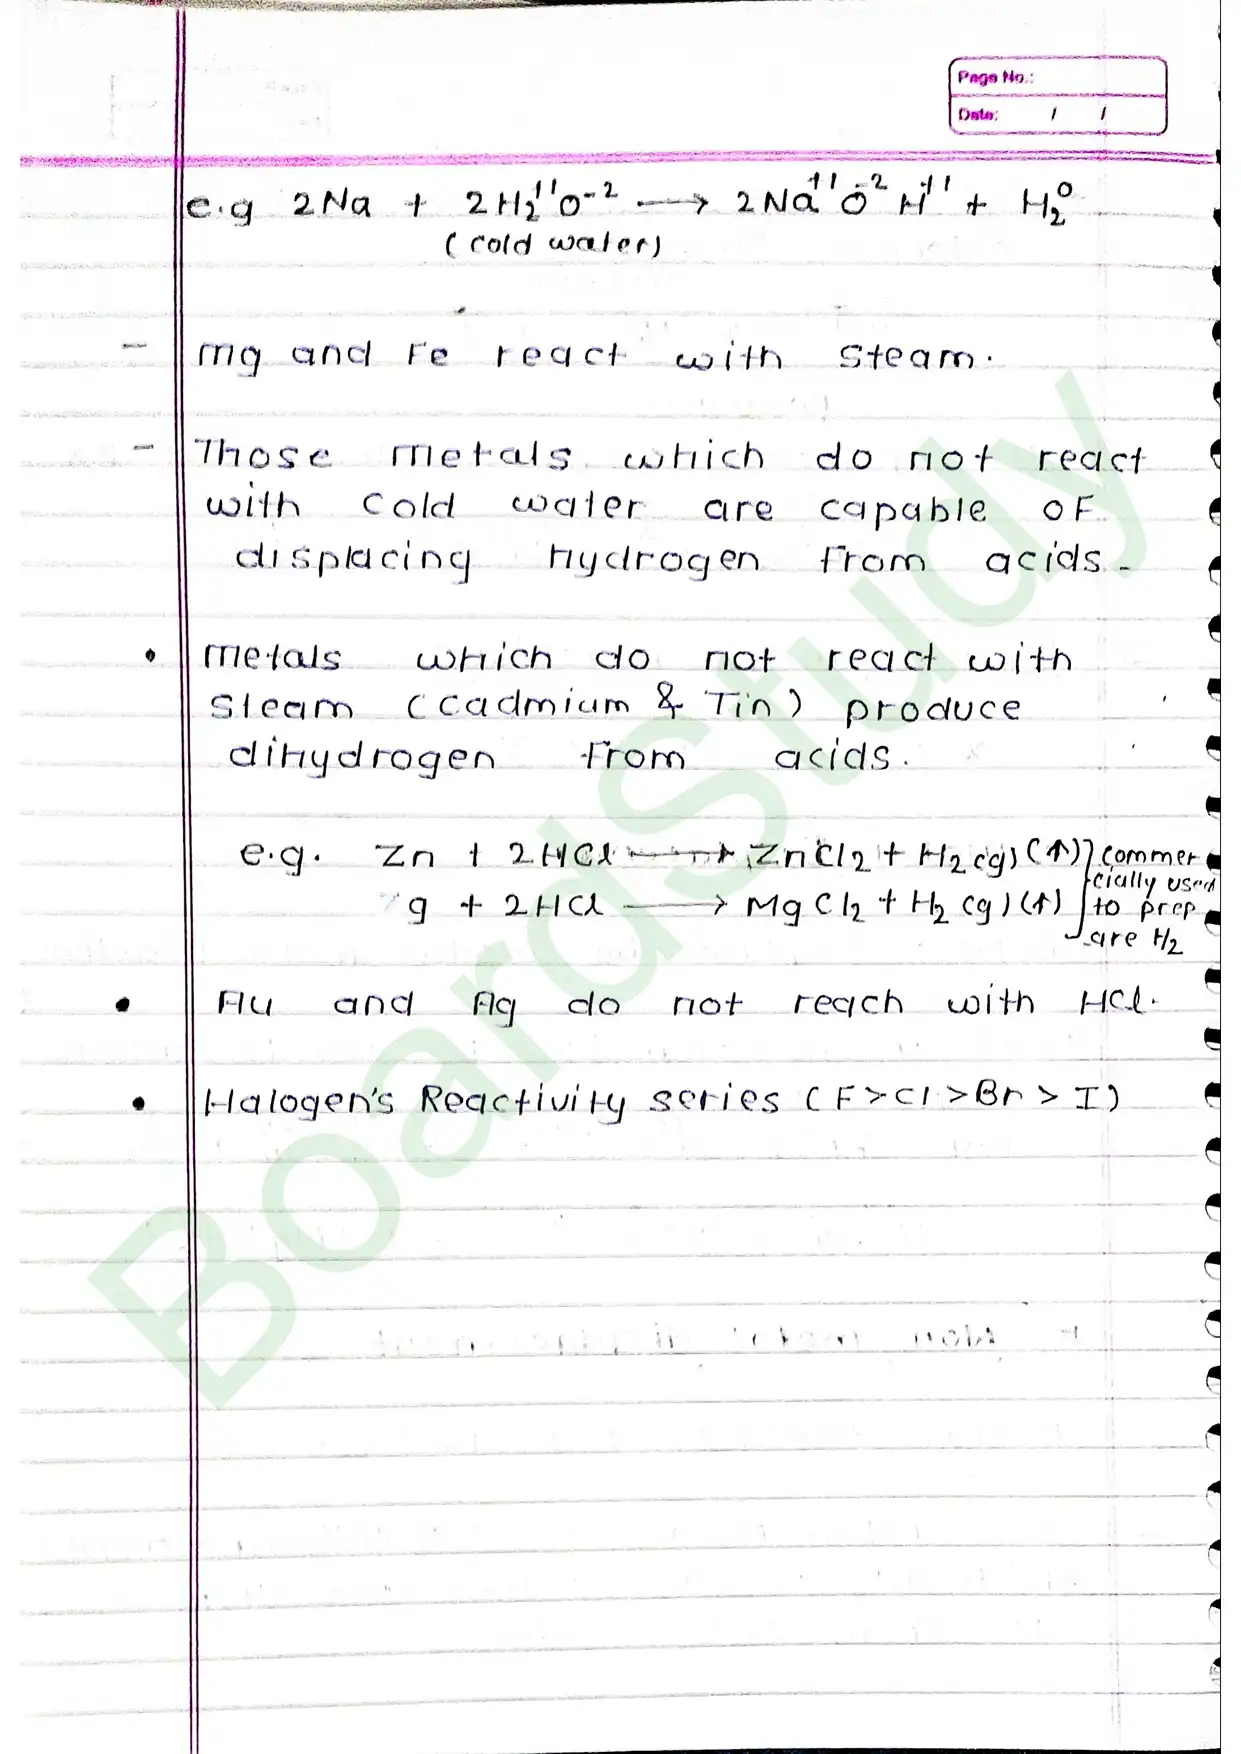 Page No.:
Date: / /
e.g 2Na + 2H₂⁺¹O⁻² → 2Na⁺¹O⁻²H⁺¹ + H₂⁰
(cold water)
- Mg and Fe react with steam.
- Those metals which do not react
with cold water are capable of
displacing hydrogen from acids.
• Metals which do not react with
steam (Cadmium & Tin) produce
dihydrogen from acids.
e.g. Zn + 2HCl → ZnCl2 + H2(g) (↑) } Commer
cially used
g + 2HCl → MgCl2 + H2(g) (↑) to prep
are H2
• Au and Ag do not reach with HCl.
• Halogen's Reactivity series (F > Cl > Br > I)
BoardStudy